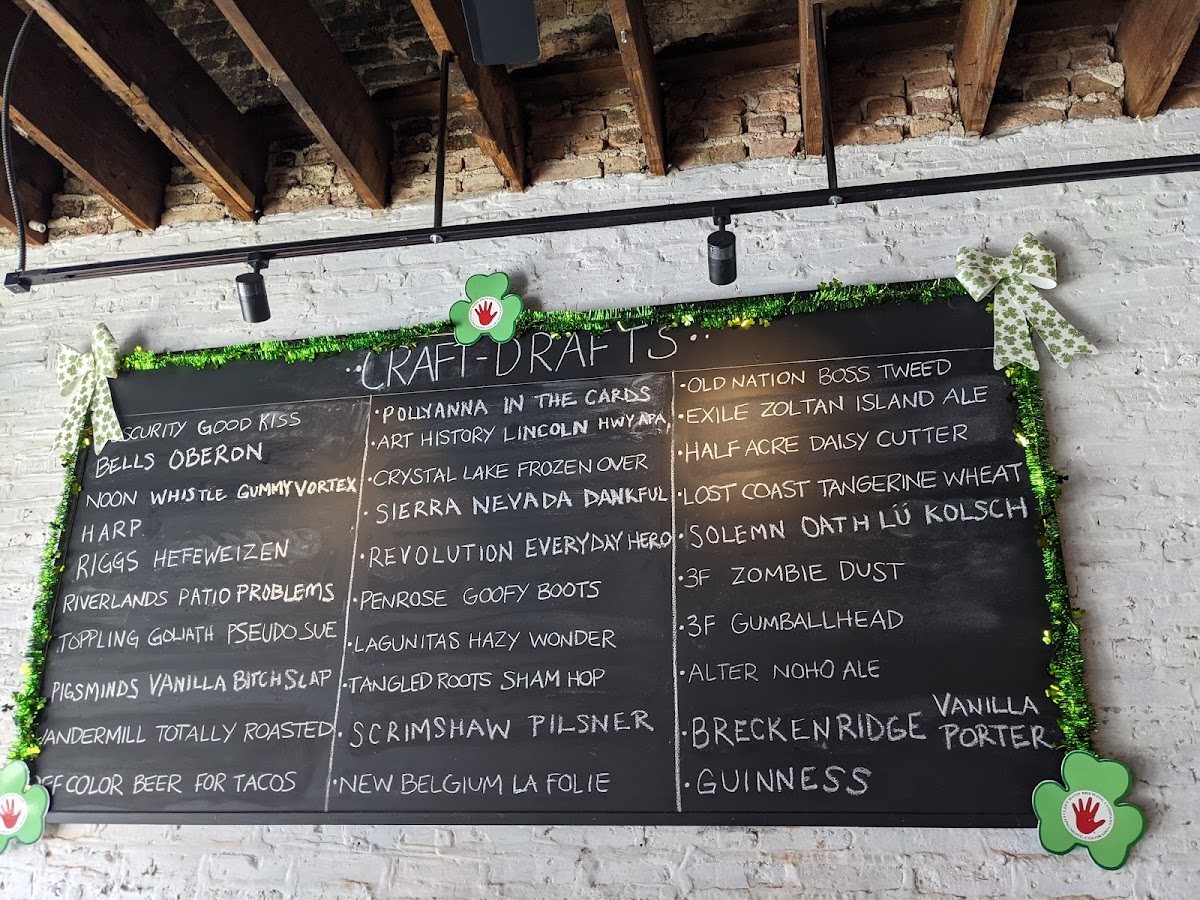 ··CRAFT-DRAFTS··
SCURITY GOOD KISS
BELLS OBERON
NOON WHISTLE GUMMYVORTEX
HARP
RIGGS HEFEWEIZEN
RIVERLANDS PATIO PROBLEMS
TOPPLING GOLIATH PSEUDO SUE
PIGSMINDS VANILLA BITCHSLAP
VANDERMILL TOTALLY ROASTED
OFF COLOR BEER FOR TACOS
·POLLYANNA IN THE CARDS
·ART HISTORY LINCOLN HWY APA
·CRYSTAL LAKE FROZEN OVER
·SIERRA NEVADA DANKFUL
·REVOLUTION EVERYDAY HERO
·PENROSE GOOFY BOOTS
·LAGUNITAS HAZY WONDER
·TANGLED ROOTS SHAM HOP
·SCRIMSHAW PILSNER
·NEW BELGIUM LA FOLIE
·OLD NATION BOSS TWEED
·EXILE ZOLTAN ISLAND ALE
·HALF ACRE DAISY CUTTER
·LOST COAST TANGERINE WHEAT
·SOLEMN OATH LÜ KOLSCH
·3F ZOMBIE DUST
·3F GUMBALLHEAD
·ALTER NOHO ALE
·BRECKENRIDGE VANILLA
PORTER
·GUINNESS